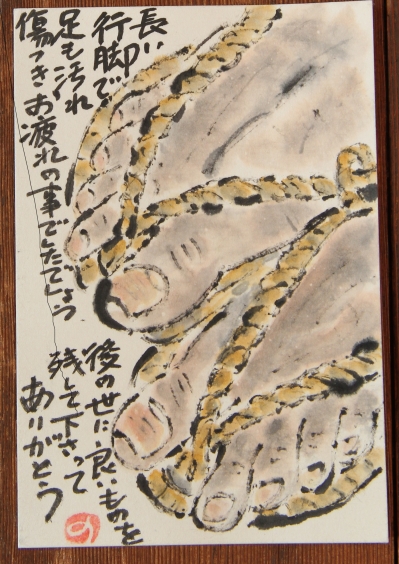 長い
行脚で
足も汚れ
傷つきお疲れの事でしたでしょう
後の世に良いものを
残して下さって
ありがとう
の